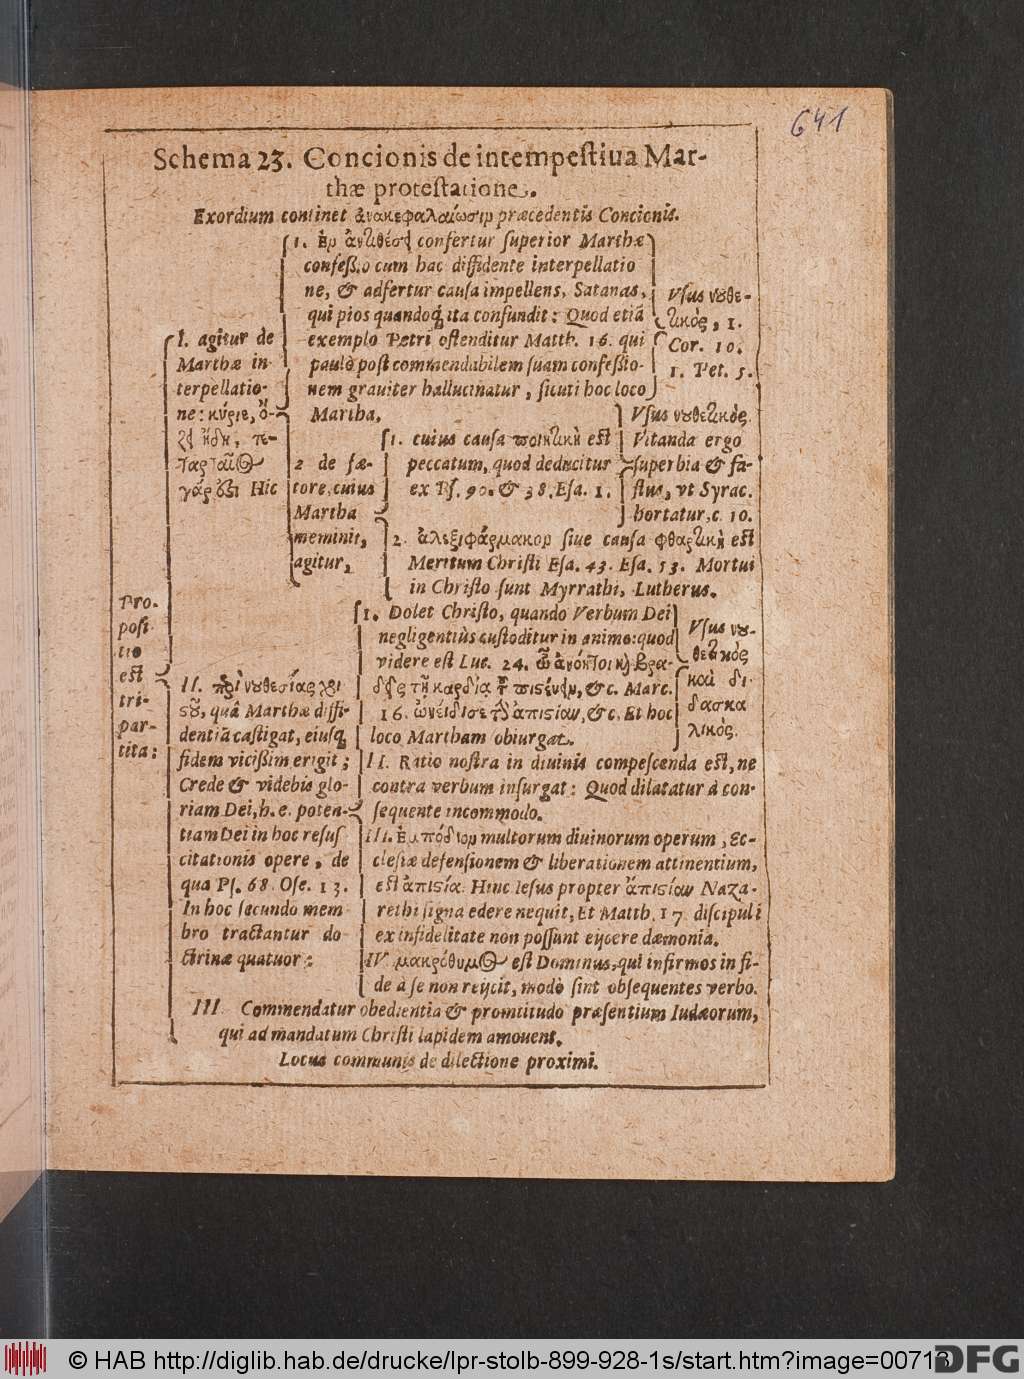 641
Schema 23. Concionis de intempestiua Mar-
thæ protestatione.
Exordium continet ἀνακεφαλαίωσιν præcedentis Concionis.
Pro-
posi-
tio
est
tri-
par-
tita:
I. agitur de
Marthæ in-
terpellatio-
ne: κύριε, ὄ-
ζει ἤδη, τε-
ταρταῖος
γάρ ἐστι Hic
1. Ἐν ἀντιθέσει confertur superior Marthæ
confeßio cum hac diffidente interpellatio
ne, & adfertur causa impellens, Satanas,
qui pios quandoq; ita confundit: Quod etiã
exemplo Petri ostenditur Matth. 16. qui
paulò post commendabilem suam confeßio-
nem grauiter hallucinatur, sicuti hoc loco
Martha.
Vsus νουθε-
τικὸς, 1.
Cor. 10.
1. Pet. 5.
2 de fæ-
tore, cuius
Martha
meminit,
agitur,
1. cuius causa ποιητικὴ est
peccatum, quod deducitur
ex Ps. 90. & 38. Esa. 1.
Vsus νουθετικὸς.
Vitanda ergo
superbia & fa-
stus, vt Syrac.
hortatur, c. 10.
2. ἀλεξιφάρμακον siue causa φθαρτικὴ est
Meritum Christi Esa. 43. Esa. 53. Mortui
in Christo sunt Myrrathi, Lutherus.
II. περὶ νουθεσίας χρι
στοῦ, quâ Marthæ diffi-
dentiã castigat, eiusq;
fidem vicißim erigit;
Crede & videbis glo-
riam Dei, h. e. poten-
tiam Dei in hoc resus
citationis opere, de
qua Ps. 68. Ose. 13.
In hoc secundo mem
bro tractantur do
ctrinæ quatuor:
1. Dolet Christo, quando Verbum Dei
negligentiùs custoditur in animo: quod
videre est Luc. 24. ὦ ἀνόητοι καὶ βρα-
δεῖς τῇ καρδίᾳ τοῦ πιστεύειν, &c. Marc.
16. ὠνείδισε τὴν ἀπιστίαν, &c. Et hoc
loco Martham obiurgat.
Vsus νου-
θετικὸς
καὶ δι-
δασκα
λικὸς.
II. Ratio nostra in diuinis compescenda est, ne
contra verbum insurgat: Quod dilatatur à con-
sequente incommodo.
III. Ἐμπόδιον multorum diuinorum operum, Ec-
clesiæ defensionem & liberationem attinentium,
est ἀπιστία. Hinc Iesus propter ἀπιστίαν Naza-
rethi signa edere nequit, Et Matth. 17 discipuli
ex infidelitate non possunt eijcere dæmonia.
IV. μακρόθυμος est Dominus, qui infirmos in fi-
de à se non reijcit, modò sint obsequentes verbo.
III Commendatur obedientia & promtitudo præsentium Iudæorum,
qui ad mandatum Christi lapidem amouent.
Locus communis de dilectione proximi.
© HAB http://diglib.hab.de/drucke/lpr-stolb-899-928-1s/start.htm?image=00713
DFG